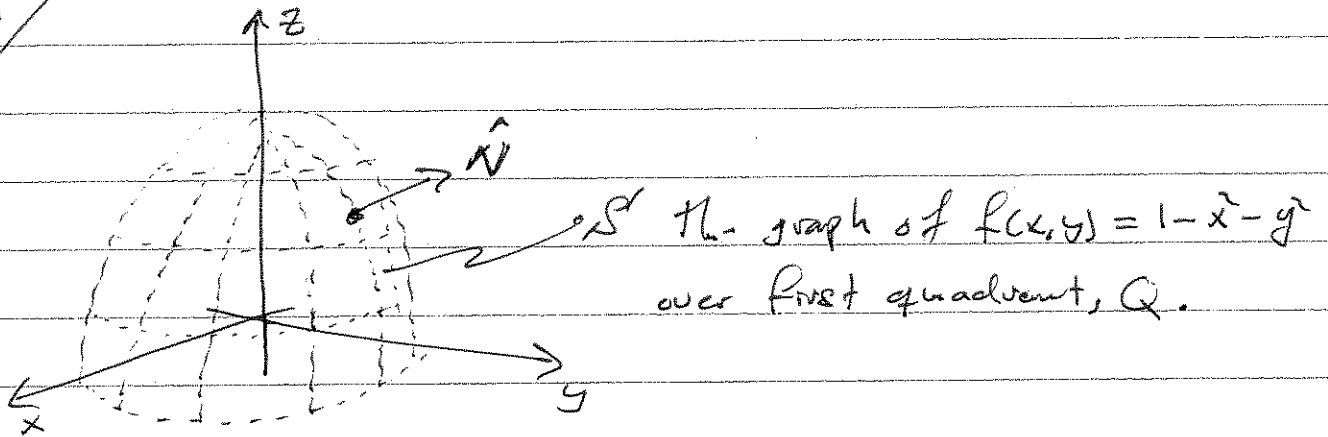 z
N̂
S the graph of f(x,y) = 1-x²-y²
over first quadrant, Q.
x
y